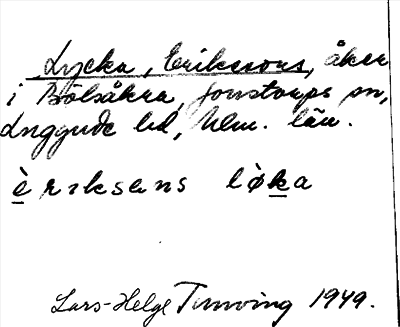 Lycka, Erikssons, åker
i Bölsåkra, Jonstorps sn,
Luggude hd, Mlm. län.
èriksens lø̀ka
Lars-Helge Tunving 1949.